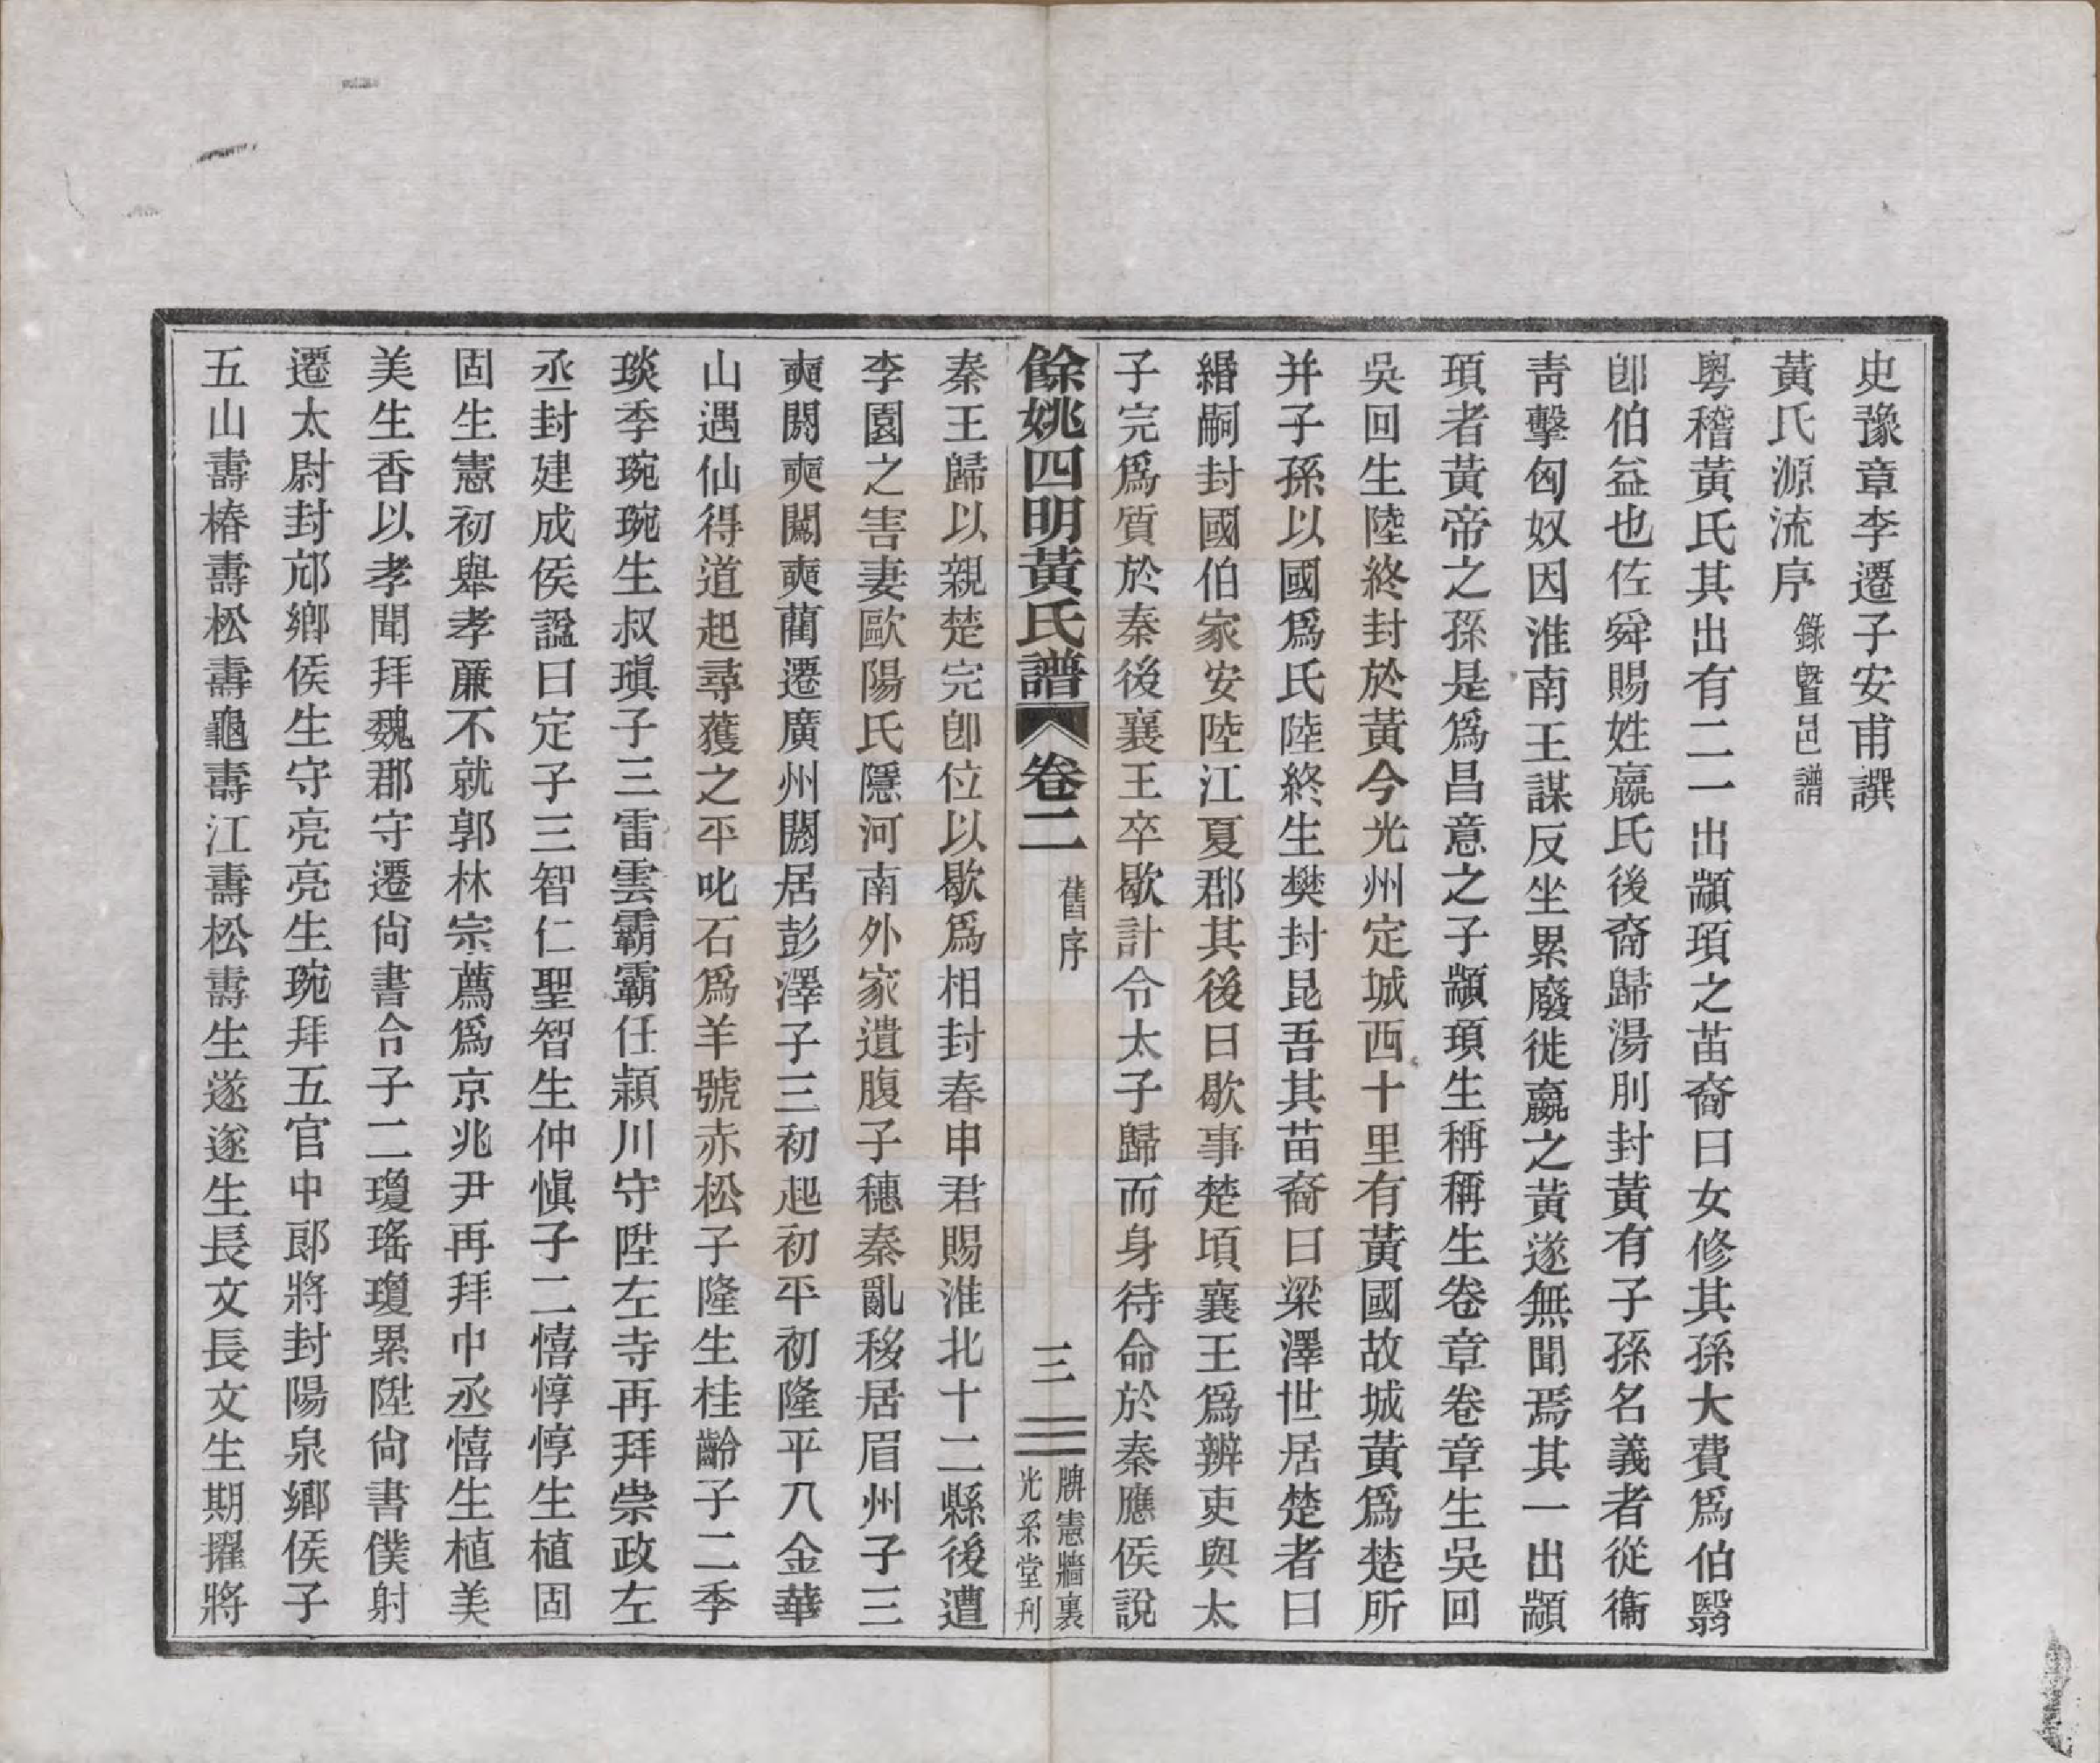 史豫章李遷子安甫譔
黃氏源流序 錄曁邑譜
粵稽黃氏其出有二一出顓頊之苗裔曰女修其孫大費爲伯翳
卽伯益也佐舜賜姓嬴氏後裔歸湯別封黃有子孫名義者從衞
靑擊匈奴因淮南王謀反坐累廢徙嬴之黃遂無聞焉其一出顓
頊者黃帝之孫是爲昌意之子顓頊生稱稱生卷章卷章生吳回
吳回生陸終封於黃今光州定城西十里有黃國故城黃爲楚所
并子孫以國爲氏陸終生樊封昆吾其苗裔曰梁澤世居楚者曰
緡嗣封國伯家安陸江夏郡其後曰歇事楚頃襄王爲辨吏與太
子完爲質於秦後襄王卒歇計令太子歸而身待命於秦應侯說
餘姚四明黃氏譜 卷二 舊序 三 牌憲牆裏 光系堂刋
秦王歸以親楚完卽位以歇爲相封春申君賜淮北十二縣後遭
李園之害妻歐陽氏隱河南外家遺腹子穗秦亂移居眉州子三
奭閼奭闖奭藺遷廣州閼居彭澤子三初起初平初隆平入金華
山遇仙得道起尋獲之平叱石爲羊號赤松子隆生桂齡子二季
琰季琬琬生叔瑱子三雷雲霸霸任潁川守陞左寺再拜祟政左
丞封建成侯諡曰定子三智仁聖智生仲愼子二憘惇惇生植固
固生憲初舉孝廉不就郭林宗薦爲京兆尹再拜中丞憘生植美
美生香以孝聞拜魏郡守遷尙書令子二瓊瑤瓊累陞尙書僕射
遷太尉封邟鄉侯生守亮亮生琬拜五官中郎將封陽泉鄉侯子
五山壽椿壽松壽龜壽江壽松壽生遂遂生長文長文生期擢將